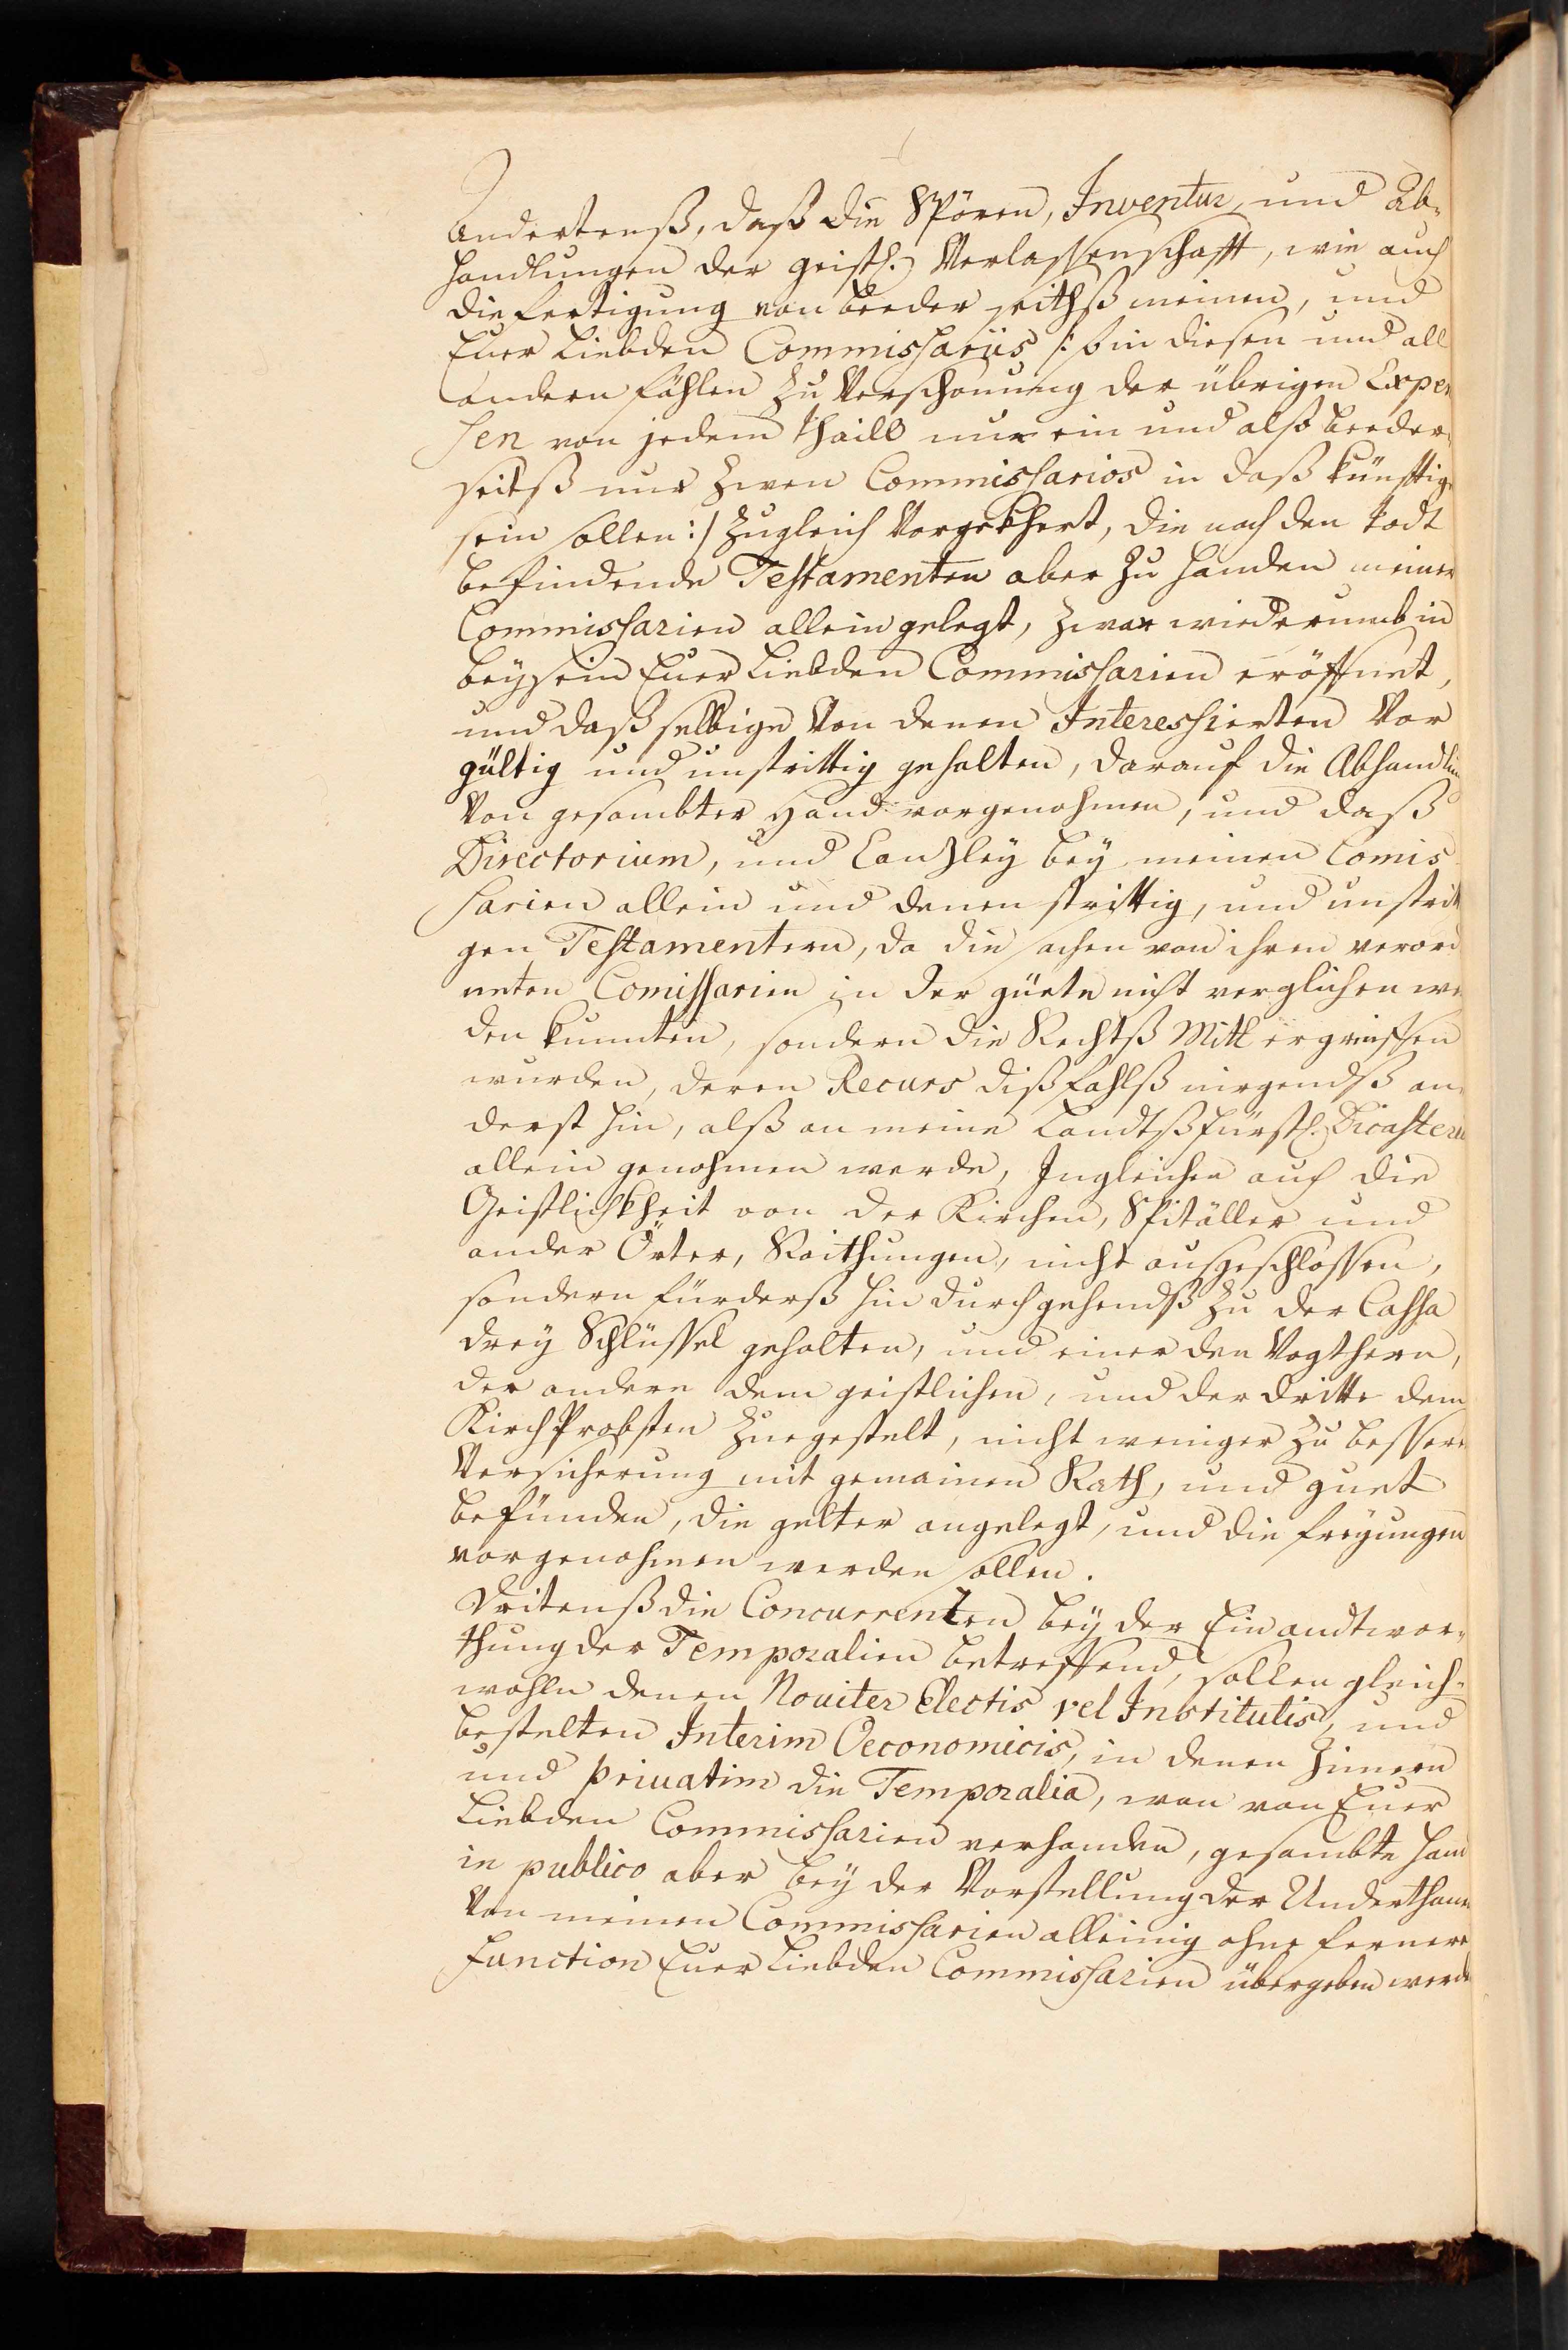 Andertenß, daß die Spören, Inventur, und Ab-
handlungen der geistl. Verlassenschafft, wie auch
die fertigung von beeder seithß meinen, und
Euer Liebden Commissariis /: so in diesen und all
andern fählen zu Verschonung der übrigen Expen
sen von jedem thaill nur ein und also beeder-
seitß nur zween Commissarios in daß künfftige
sein sollen :/ zugleich Vorgekhert, die nach den todt
befindende Testamenten aber zu handen meiner
Commissarien allein gelegt, zwar wiederumb in
beysein Euer Liebden Commissarien eröffnet,
und daß selbige Von denen Interessierten Vor
gültig und unstrittig gehalten, darauf die Abhandlun
Von gesambter Hand vorgenohmen, und daß
Directorium, und Canzley bey meinen Comis
sarien allein und denen strittig, und unstrit
gen Testamentern, da die sachen von ihren verord
neten Comissarien in der güete nicht verglichen we
den kunnten, sondern die Rechtß Mitl ergriffen
wurden, deren Recurs dißfahlß nirgendß an
derst hin, alß an meine Landtßfürstl. Dicasteri
allein genohmen werde, Ingleichen auch die
Geistlichkheit von der Kirchen, Spitäller und
ander Örter, Raithungen, nicht ausgeschlossen,
sondern fürderß hin durchgehendß zu der Cassa
drey Schlüssel gehalten, und einer den Vogthern,
der andere dem geistlichen, und der dritte dem
KirchProbsten zuegestelt, nicht weniger zu bessere
Versicherung mit gemainen Rath, und guet
befünden, die gelter angelegt, und die freyungen
vorgenohmen werden sollen.
Dritenß die Concurrenzen bey der Einandtwor-
thung der Temporalien betreffend, sollen gleich-
wohln denen Noviter Electis vel Institutis, und
bestelten Interim Oeconomicis, in denen Zimern
und privatim die Temporalia, wan von Euer
Liebden Commissarien verhanden, gesambte Hand
in publico aber bey der Vorstellung der Underthane
Von meinen Commissarien alleinig ohne fernere
function Euer Liebden Commissarien übergeben werde